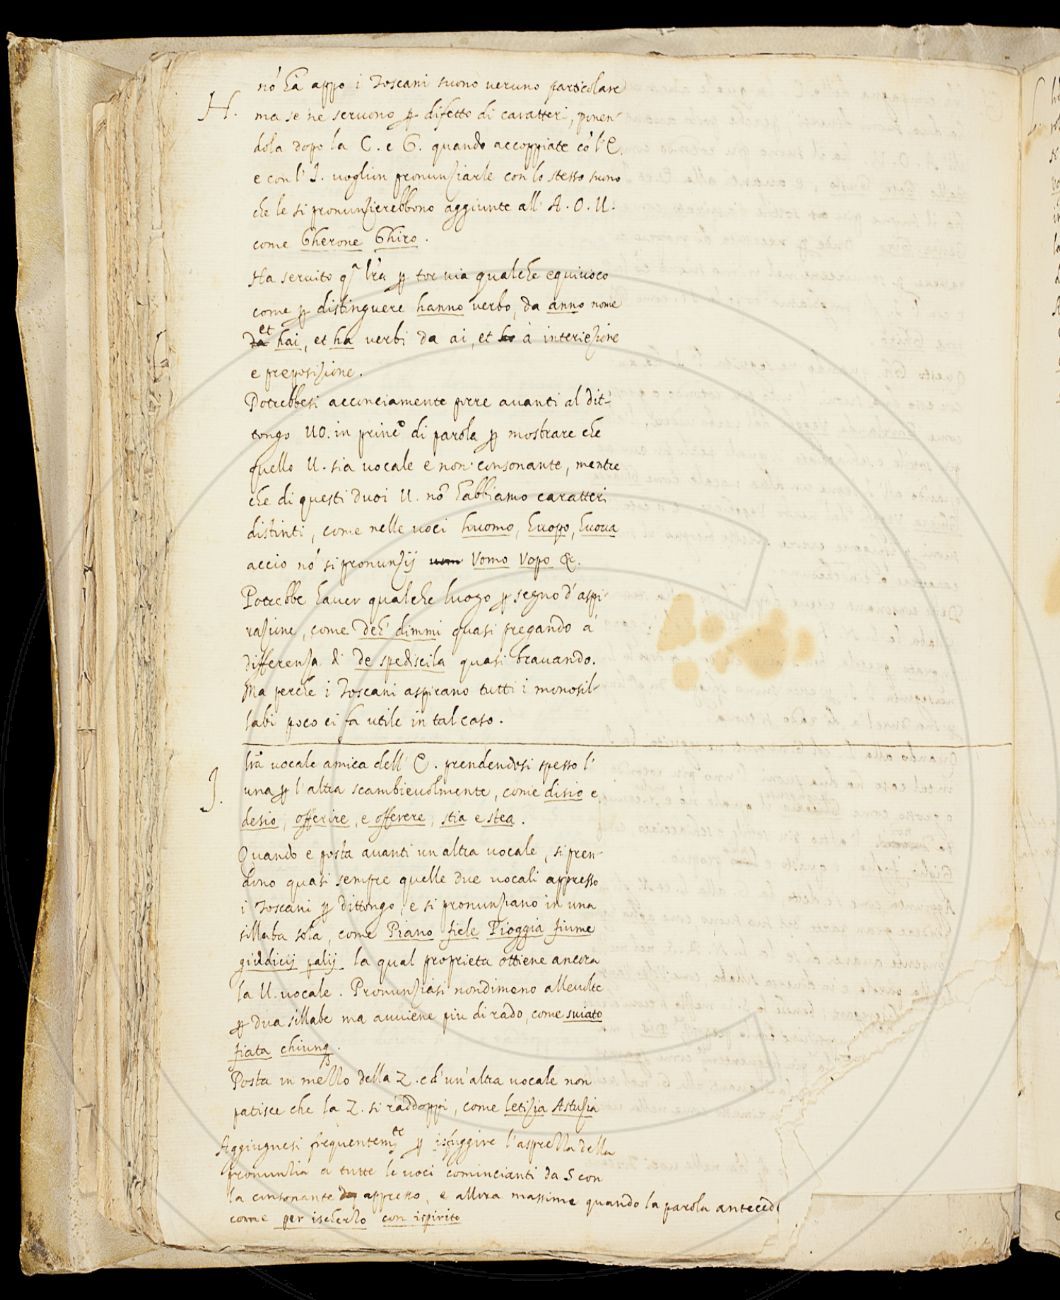 H. nõ ha appo i Toscani suono veruno particolare
ma se ne servono ꝑ difetto di caratteri, ponen-
dola dopo la C. e G. quando accoppiate cõ l' E.
e con l' I. voglion pronunziarle con lo stesso suono
che le si pronunzierebbono aggiunte all' A. O. U.
come Gherone Ghiro.
Ha servito q.ª lrã ꝑ tor via qualche equivoco
come ꝑ distinguere hanno verbo, da anno nome
da et hai, et ha verbi da ai, et à interiezione
e preposizione.
Potrebbesi acconciamente porre avanti al dit-
tongo UO. in princº di parola ꝑ mostrare che
quello U. sia vocale e non consonante, mentre
che di questi duoi U. nõ habbiamo caratteri
distinti, come nelle voci huomo, huopo, huova
accio nõ si pronunzij Vomo Vopo &.
Potrebbe haver qualche luogo ꝑ segno d'aspi-
razione, come deh dimmi quasi pregando à
differenza di de spediscila quasi bravando.
Ma perche i Toscani aspirano tutti i monosil-
labi poco ci fa utile in tal caso.
I. lrã vocale amica dell' E. prendendosi spesso l'
una ꝑ l'altra scambievolmente, come disio e
desio, offerire, e offerere, stia e stea.
Quando e posta avanti un altra vocale, si pren-
dono quasi sempre quelle due vocali appresso
i Toscani ꝑ dittongo, e si pronunziano in una
sillaba sola, come Piano fiele Pioggia fiume
giudicij palij la qual proprieta ottiene ancora
la U. vocale. Pronunziasi nondimeno allevolte
ꝑ dua sillabe ma avviene piu di rado, come sviato
fiata chiunq.
Posta in mezzo della Z. e d'un'altra vocale non
patisce che la Z. si raddoppi, come letizia Astuzia
Aggiugnesi frequentemte ꝑ isfuggire l'asprezza della
pronunzia a tutte le voci comincianti da S con
la consonante appresso, e allora massime quando la parola anteced
come per ischerzo con ispirito